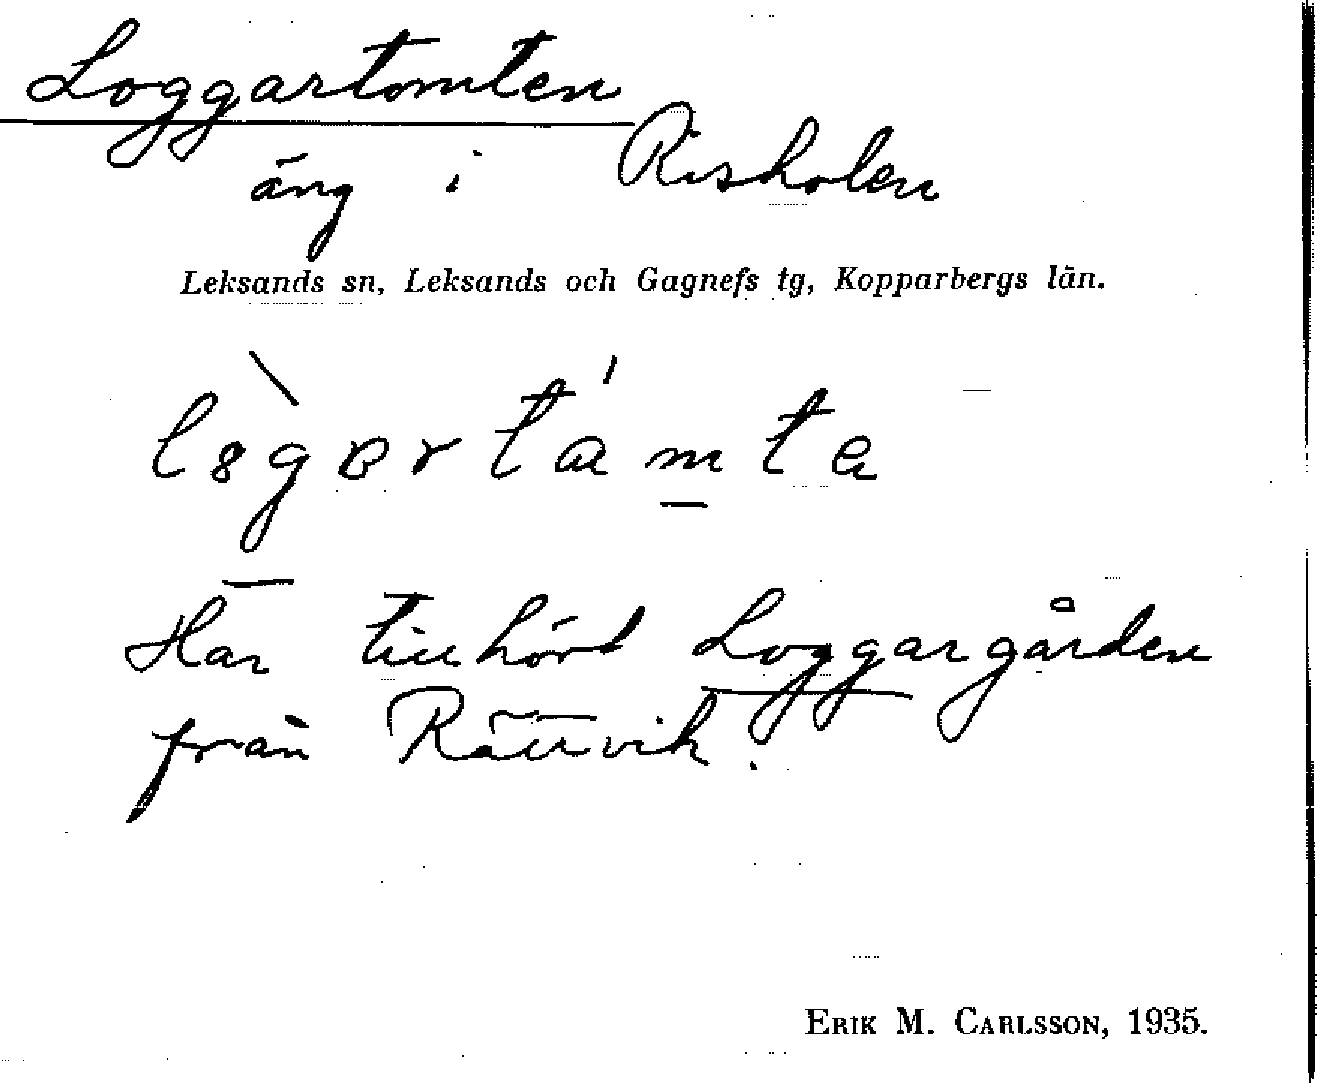 Loggartomten
äng i Risholen
Leksands sn, Leksands och Gagnefs tg, Kopparbergs län.
Har tillhört Loggargården
från Rättvik.
ERIK M. CARLSSON, 1935.